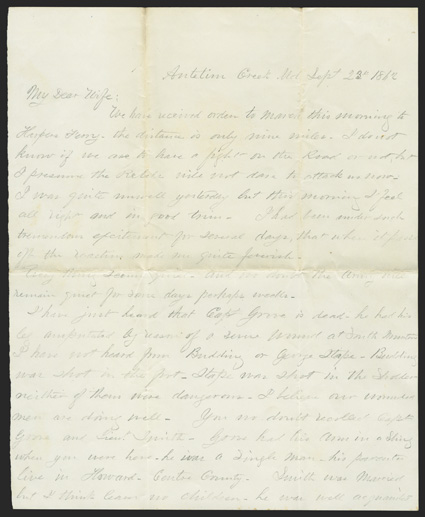 Antetim Creek Md Sept 23rd 1862
My Dear Wife;
We have received orders to March this morning to
Harpers Ferry. the distance is only nine miles - I do not
know if we are to have a fight on the Road or not but
I presume the Rebels will not dare to attack us now -
I was quite unwell yesterday but this morning I feel
all right and in good trim - I had been under such
tremendous excitement for several days, that when it passed
off the reaction made me quite feverish.
Every thing seems quiet - and no doubt the Army will
remain quiet for some days perhaps weeks -
I have just heard that Capt is dead - he had his
leg amputated by reason of a severe wound at South Mountain
I have not heard from or George -
was shot in the foot - was shot in the Shoulder
neither of them were dangerous - I believe our wounded
men are doing well - You no doubt recollect Capt
and Lieut Smith - had his Arm in a Sling
when you were here - he was a Single Man - his parents
live in Howard - Centre County - Smith was Married
but I think leaves no children - he was well acquainted